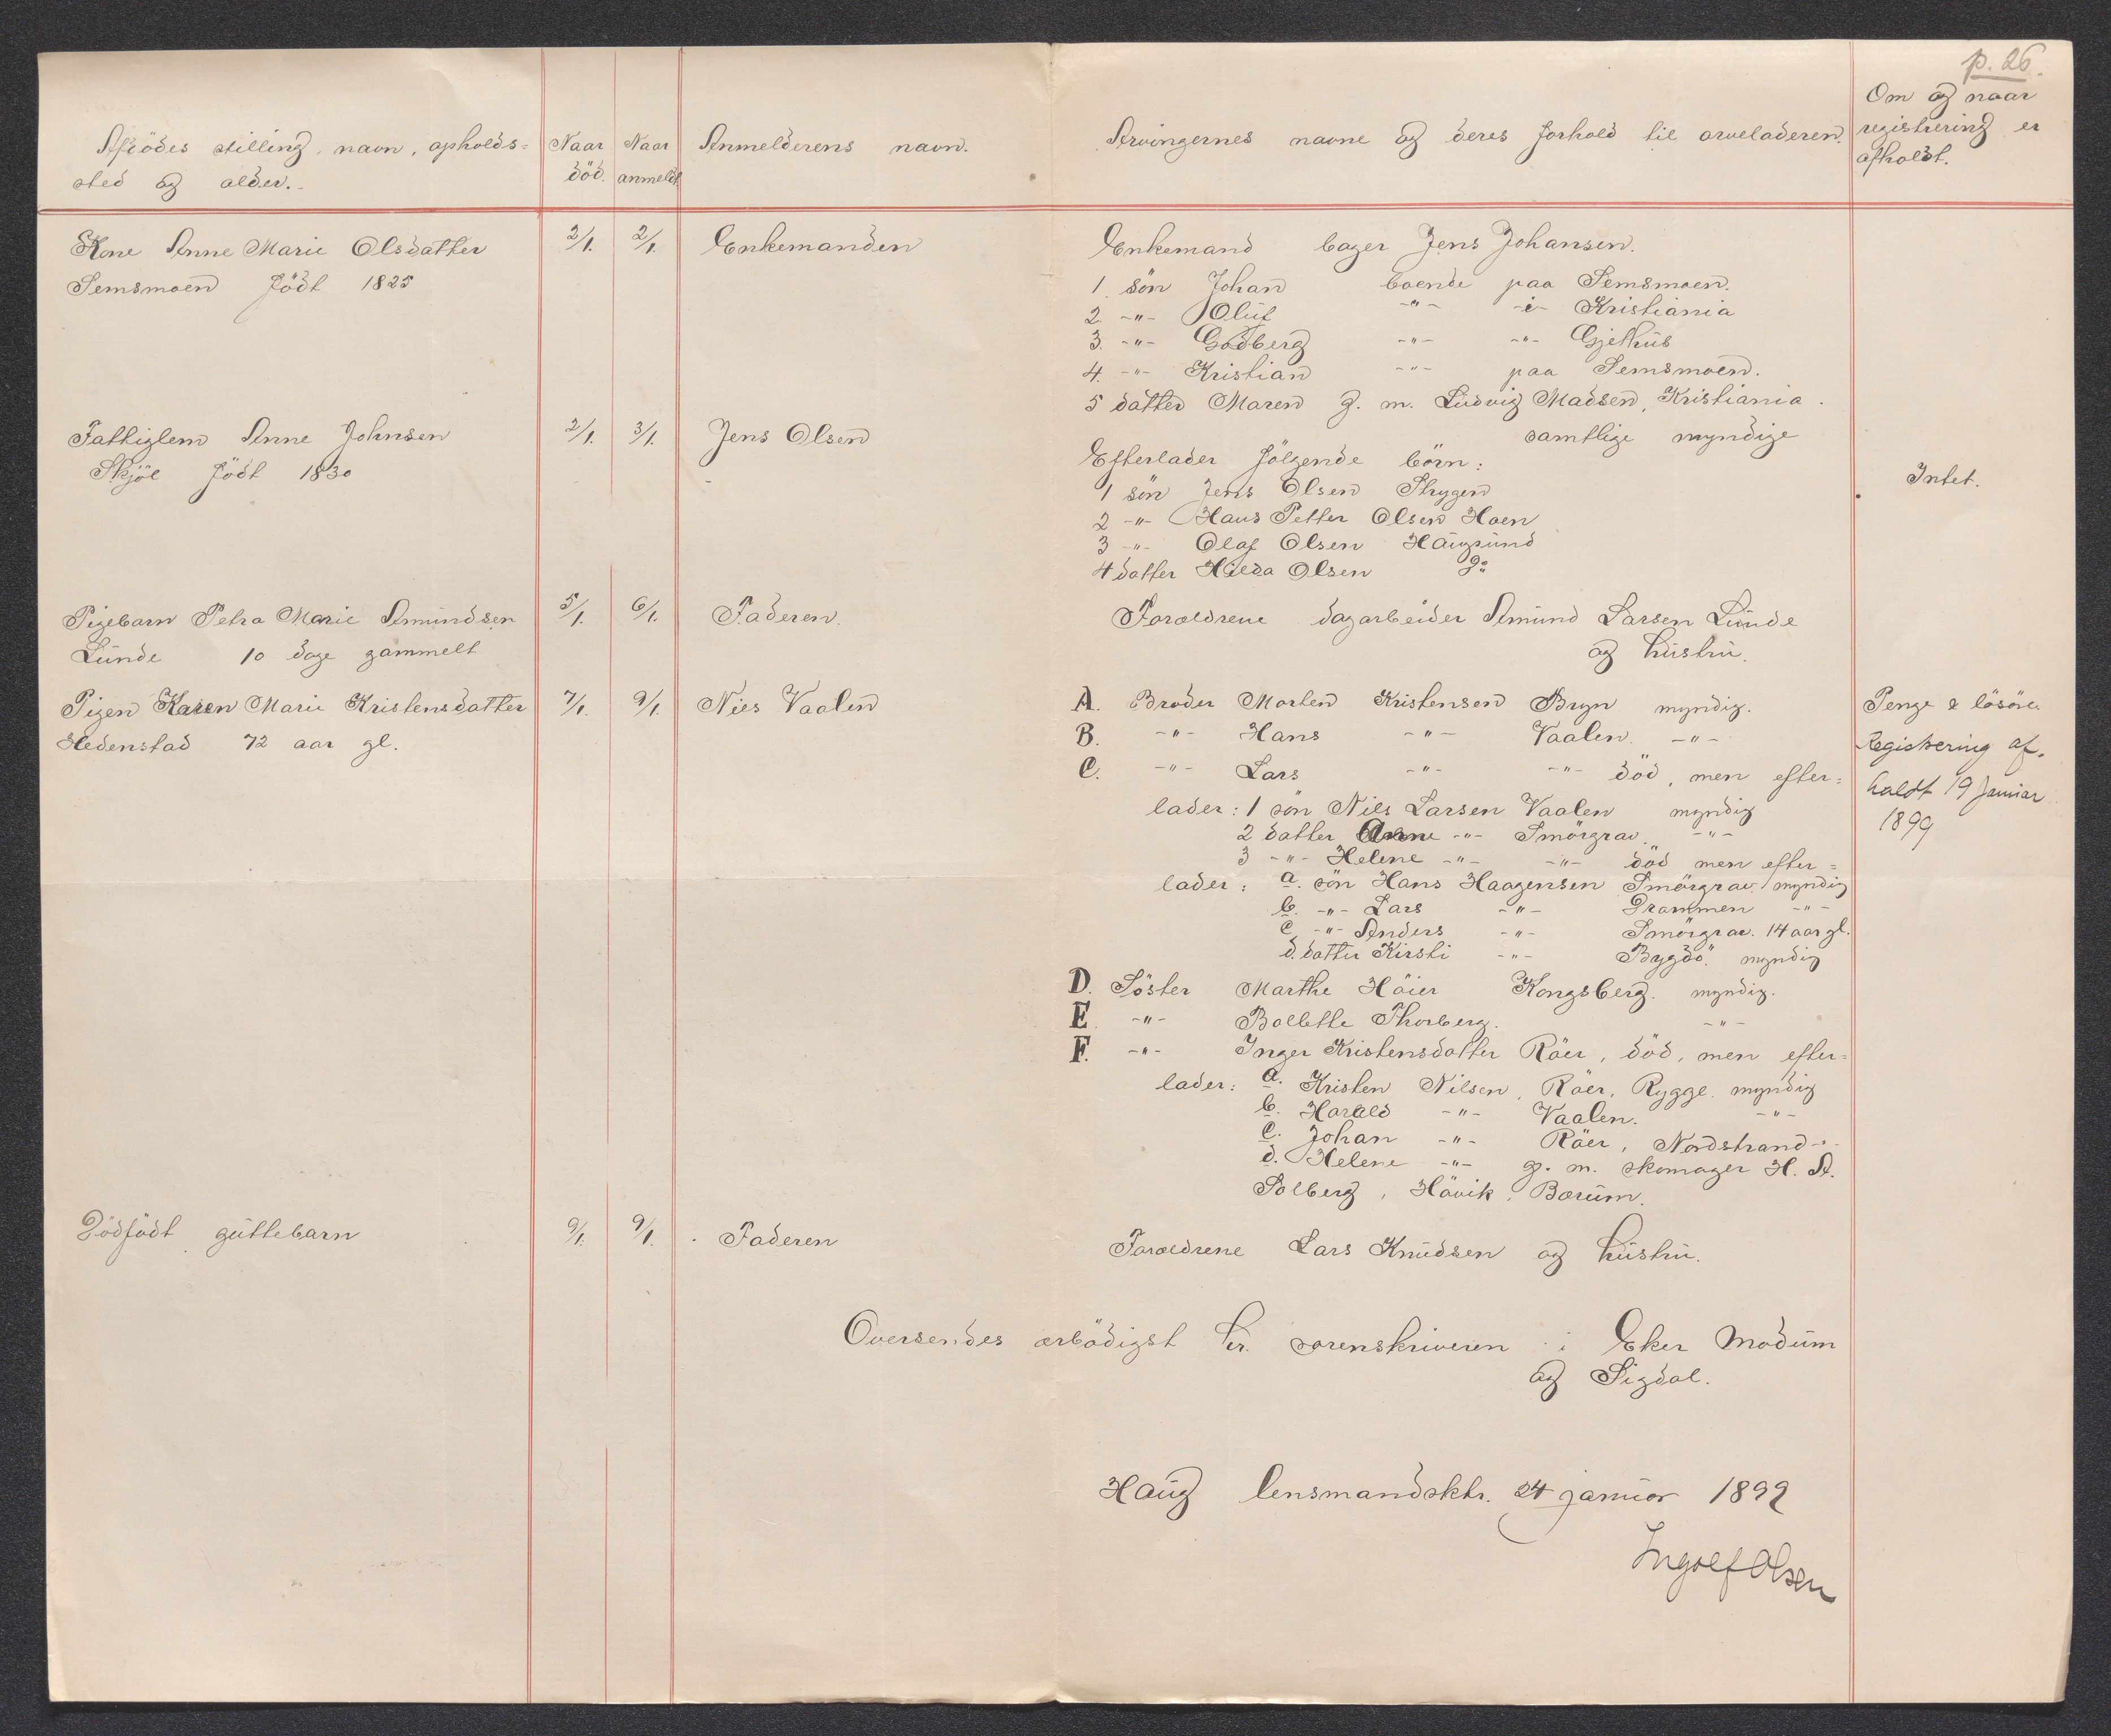 p. 26.
Afdödes stilling, navn, opholds=
sted og alder.
Naar
död.
Naar
anmeldt
Anmelderens navn.
Arvingernes navne og deres forhold til arveladeren.
Om og naar
registrering er
afholdt.
Kone Anne Marie Olsdatter
Semsmoen födt 1825
2/1. 2/1. Enkemanden
Enkemand bager Jens Johansen.
1. sön Johan boende paa Semsmoen.
2. -"- Oluf -"- -i- Kristiania
3. -"- Godberg -"- -"- Gjethus
4. -"- Kristian -"- paa Semsmoen.
5 datter Maren g. m. Ludvig Madsen, Kristiania.
samtlige myndige
Fattiglem Anne Johnsen
Skjöl födt 1830
2/1. 3/1. Jens Olsen
Efterlader fölgende börn:
1 sön Jens Olsen Strygen
2 -"- Hans Petter Olsen Hoen
3 -"- Olaf Olsen Haugsund
4 datter Hilda Olsen Do
Intet.
Pigebarn Petra Marie Amundsen
Lunde 10 dage gammelt
5/1. 6/1. Faderen.
Forældrene dagarbeider Amund Larsen Lunde
og hustru.
Pigen Karen Marie Kristensdatter
Hedenstad 72 aar gl.
7/1. 9/1. Nils Vaalen
A. Broder Morten Kristensen Bryn myndig.
B. -"- Hans -"- Vaalen. -"-
C. -"- Lars -"- -"- död, men efter=
lader: 1 sön Nils Larsen Vaalen myndig
2 datter Anne -"- Smörgrav. -"-
3 -"- Helene -"- -"- död men efter=
lader: a. sön Hans Haagensen Smörgrav. myndig
b. -"- Lars -"- Drammen -"-
c. -"- Anders -"- Smörgrav. 14 aar gl.
d. datter Kirsti -"- Bygdö. myndig
D. Söster Marthe Höier Kongsberg. myndig.
E. -"- Bollette Thorberg. -"-
F. -"- Inger Kristensdatter Röer, död, men efter=
lader: a. Kristen Nilsen, Röer, Rygge. myndig
b. Harald -"- Vaalen. -"-
c. Johan -"- Röer, Nordstrand -"-
d. Helene -"- g. m. skomager H. A.
Solberg, Hövik, Bærum.
Penge & lösöre.
Registrering af-
holdt 19 Januar
1899
Dödfödt guttebarn
9/1. 9/1. Faderen
Forældrene Lars Knudsen og hustru.
Oversendes ærbödigst hr. sorenskriveren i Eker Modum
og Sigdal.
Haug lensmandsktr. 24 januar 1899
Ingolf Olsen